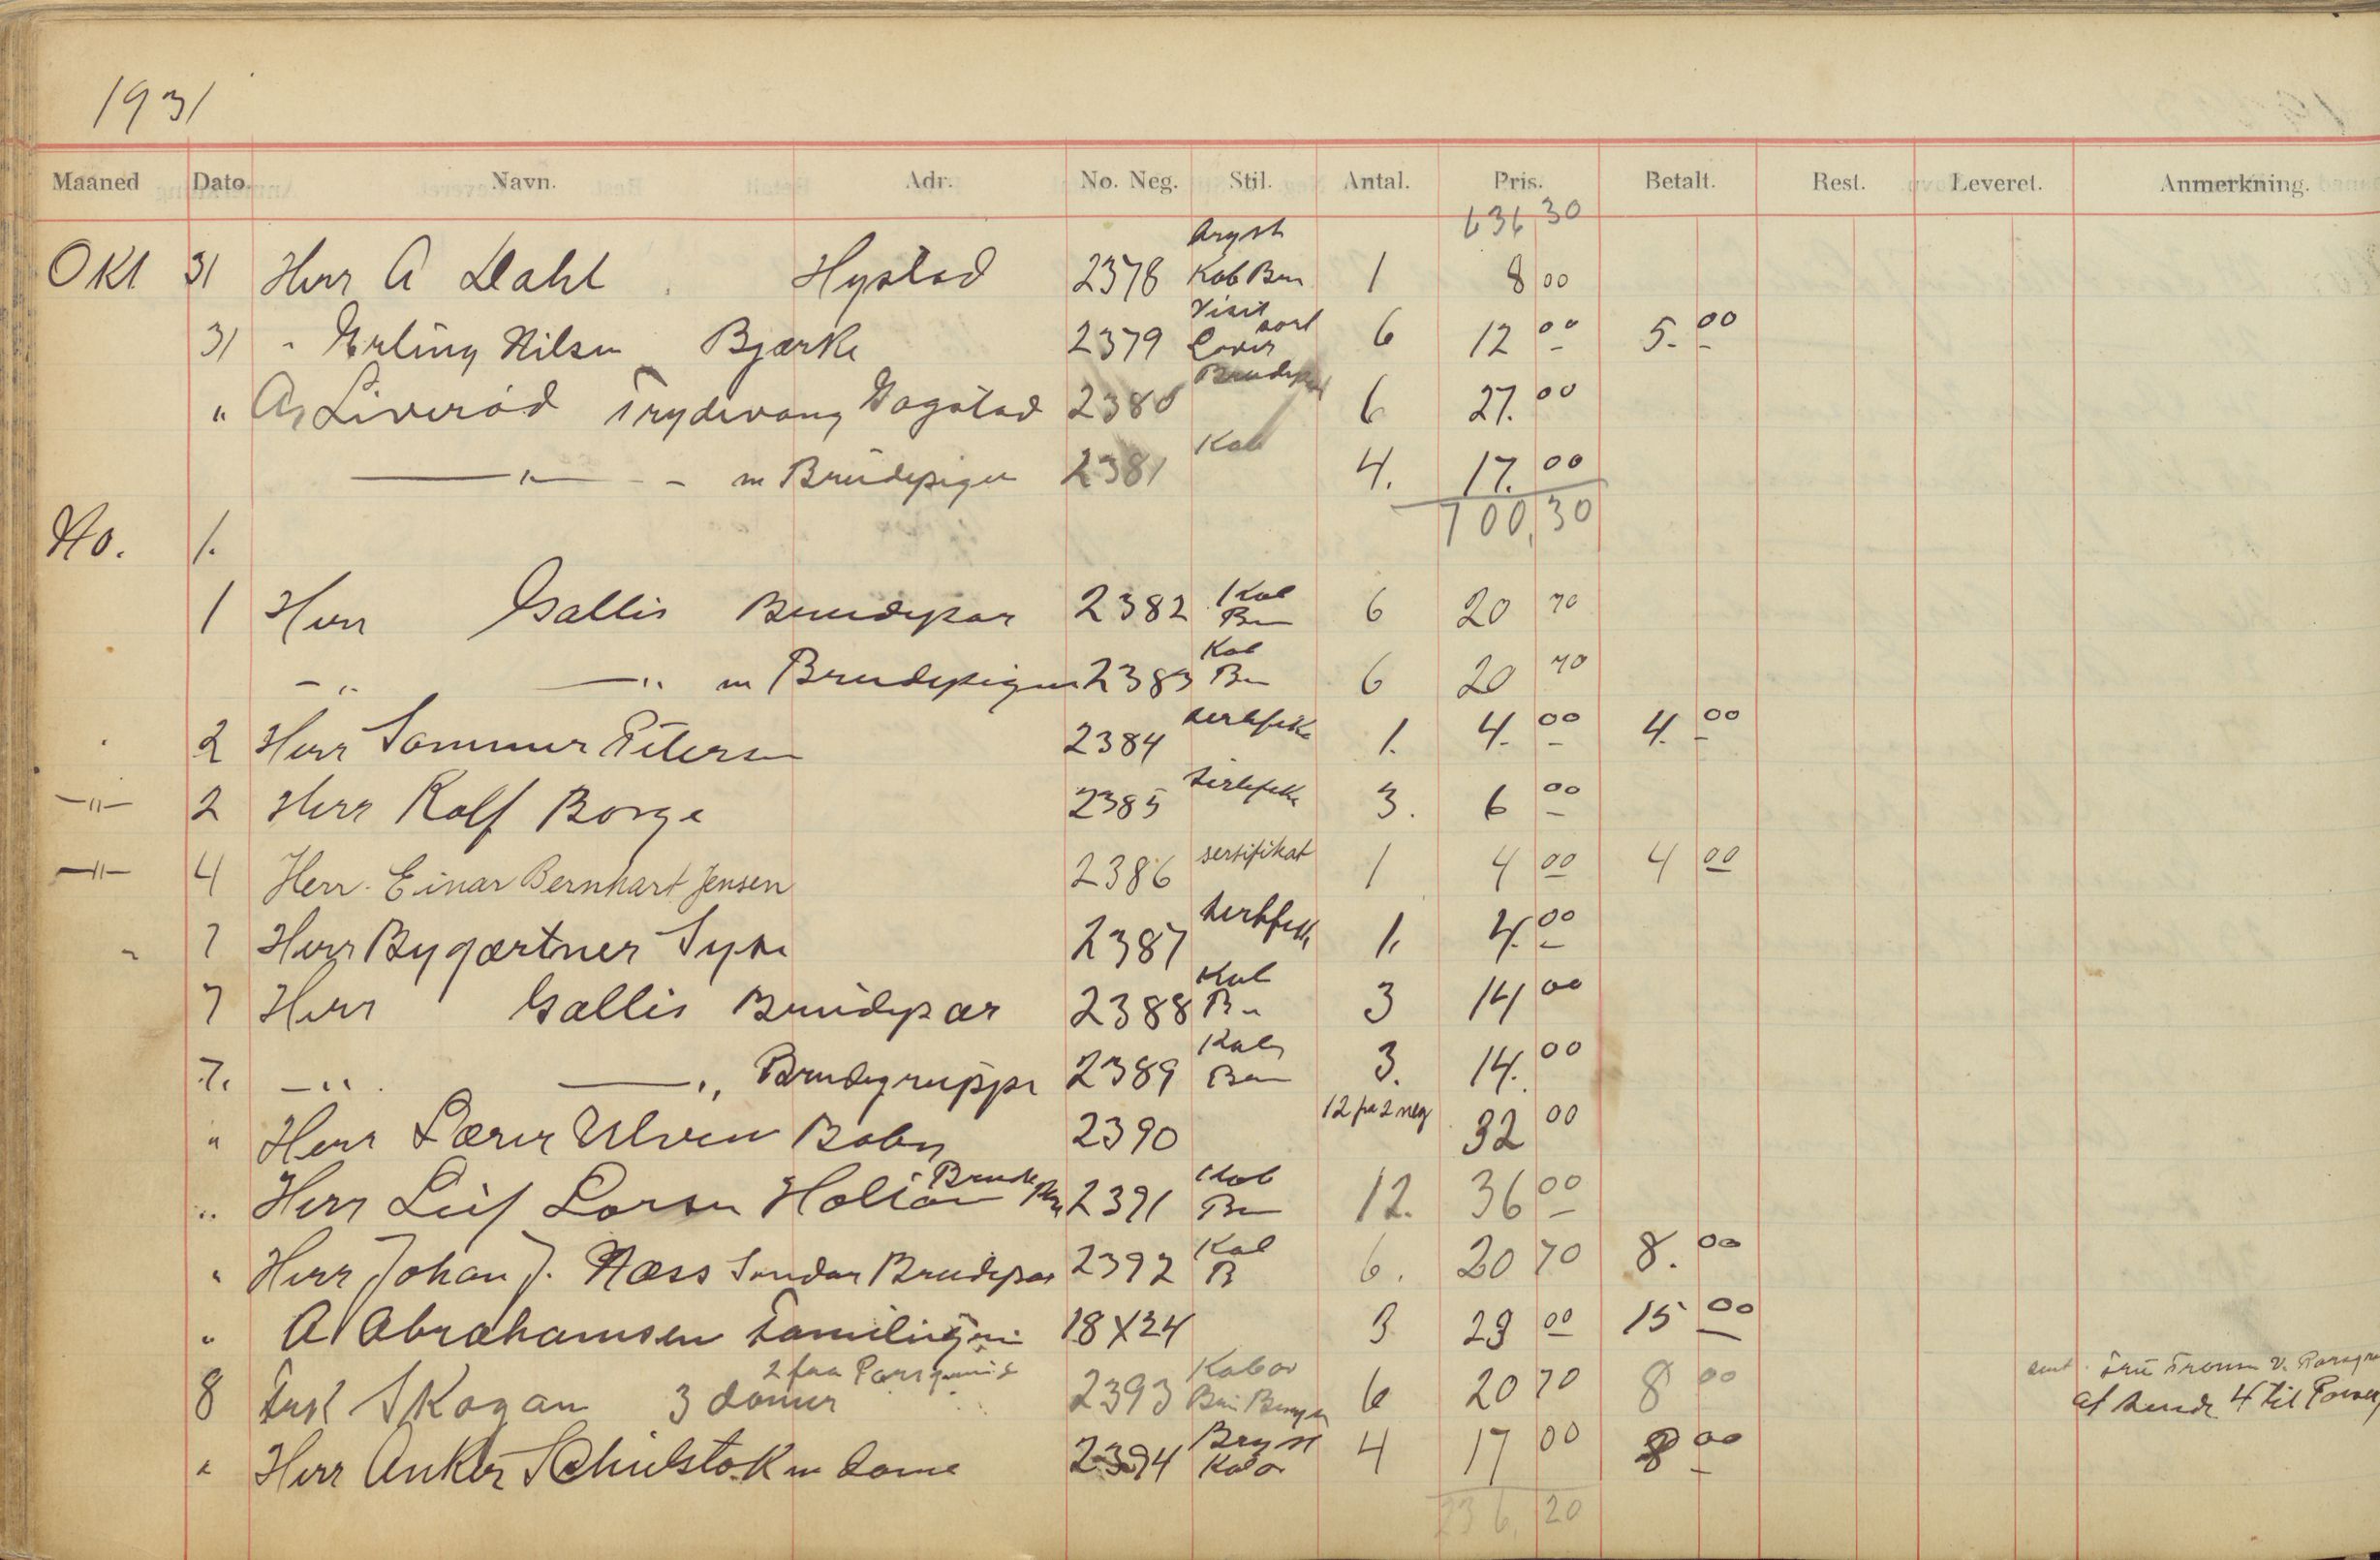 1931
Maaned Dato. Navn. Adr. No. Neg. Stil. Antal. Pris. Betalt. Rest. Leveret. Anmerkning.
636 30
Okt 31 Herr A Dahl Hystad 2378 Bryst Kab Brn 1 8 00
31 " Erling Nilsen Bjærke 2379 Visit sort 6 12 00 5. 00
" Liverød Trydevang Gogstad 2380 Brudepar 6 27. 00
—"— - m Brudepiger 2381 Kab 4. 17. 00
700,30
No. 1.
1 Herr Gallis Brudepar 2382 Kab Brn 6 20 70
-" —" m Brudepiger 2383 Kab Brn 6 20 70
2 Herr Sommer Petersen 2384 sertifika 1. 4. 00 4. 00
—"— 2 Herr Rolf Borge 2385 sertifika 3. 6 00
—"— 4 Herr. Einar Bernhart Jensen 2386 sertifikat 1 4 00 4 00
" 7 Herr Bygartner 2387 sertifik 1. 4. 00
7 Herr Gallis Brudepar 2388 Kab Brn 3 14 00
7. —" —" Brudegruppe 2389 Kab Brn 3. 14. 00
" Herr Lærer Ulven Baby 2390 12 på 2 neg 32 00
" Herr Leif Larsen Holtan Brudepar 2391 Kab Brn 12. 36 00
" Herr Johan J. Næss Sandar Brudepar 2392 Kab B 6. 20 70 8. 00
" A Abrahamsen 18 X 24 3 29 00 15 00
2 fra Porsgrund
8 Frk Skogan 3 damer 2393 Kab 6 20 70 8 00 sent. Fru v. Porsgr
af sende 4 til Porsg
" Herr Anker Schulstok m dame 2394 Bryst Kab 4 17 00 8 00
236,20